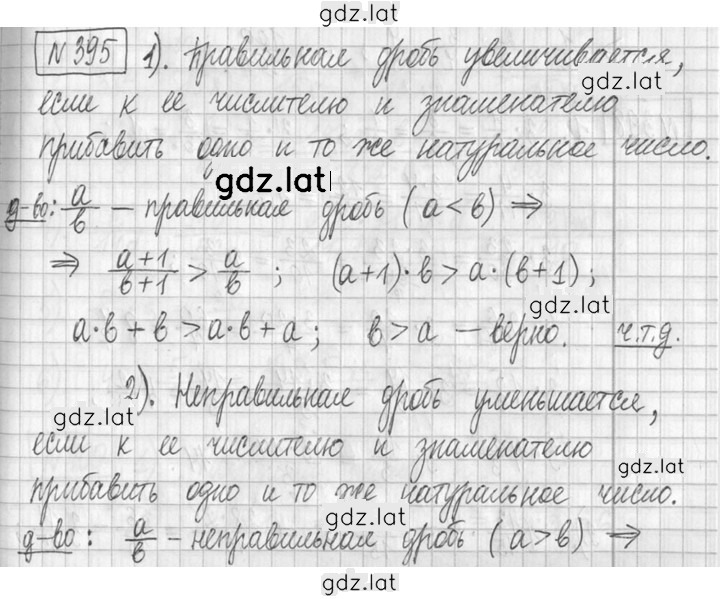 gdz.lat
№ 395 1). Правильная дробь увеличивается,
gdz.lat
если к ее числителю и знаменателю
прибавить одно и то же натуральное число.
gdz.lat
д-во: a/b — правильная дробь (a < b) ⇒
⇒ (a+1)/(b+1) > a/b ; (a+1)·b > a·(b+1);
gdz.lat
a·b + b > a·b + a; b > a — верно. ч.т.д.
2). Неправильная дробь уменьшается,
gdz.lat
если к ее числителю и знаменателю
gdz.lat
прибавить одно и то же натуральное число.
gdz.lat
д-во: a/b - неправильная дробь (a > b) ⇒
gdz.lat